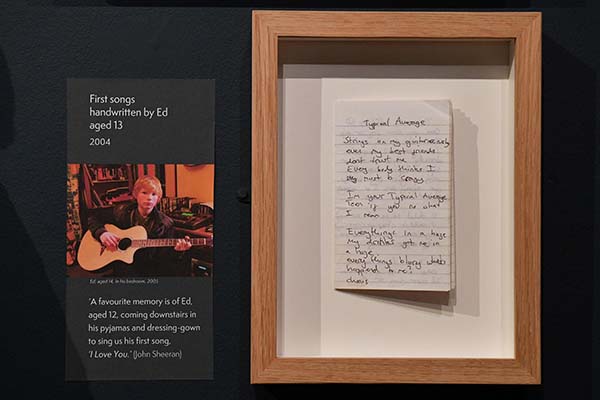 First songs
handwritten by Ed
aged 13
2004
Ed, aged 14, in his bedroom, 2005
‘A favourite memory is of Ed,
aged 12, coming downstairs in
his pyjamas and dressing-gown
to sing us his first song,
‘I Love You.’ (John Sheeran)
Typical Average
Strings on my
my best friends
dont trust me
Every body thinks I
must b crazy
Im your Typical Average
Teen if you no what
I mean
Everythings in a
My got me in
a
everythings blury whats
happend to me?